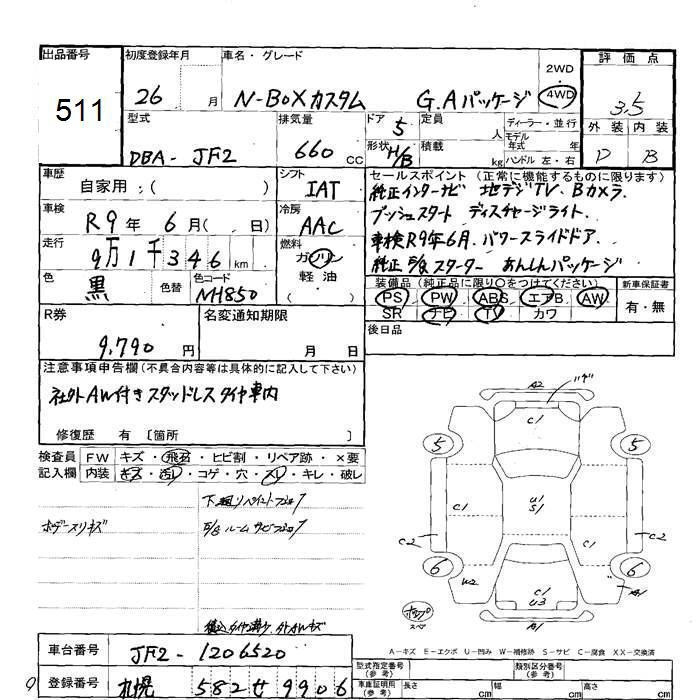 出品番号
511
初度登録年月
26 月
車名・グレード
N-BOXカスタム G.Aパッケージ
2WD
4WD
評価点
3.5
外装 内装
D B
型式
DBA- JF2
排気量
660 cc
ドア 5
形状 H/B
定員 人
積載 kg
ディーラー・並行
モデル年式 年
ハンドル 左・右
車歴
自家用:( )
シフト
IAT
車検
R9年 6月( 日)
冷房
AAC
走行
9万1千346 km
燃料
ガソリン
軽油
( )
色
黒
色替
色コード
NH850
セールスポイント (正常に機能するものに限ります)
純正インターナビ 地デジTV. Bカメラ
プッシュスタート ディスチャージライト.
車検R9年6月. パワースライドドア.
純正E/gスターター あんしんパッケージ
装備品(純正品に限り○をつけてください)
PS PW ABS エアB AW
SR ナビ TV カワ
新車保証書
有・無
後日品
R券
9,790 円
名変通知期限
月 日
注意事項申告欄(不具合内容等は具体的に記入して下さい)
社外AW付きスタッドレスタイヤ車内
修復歴 有 〔箇所 〕
検査員記入欄
FW キズ・飛石・ヒビ割・リペア跡・×要
内装 キズ・汚れ・コゲ・穴・スレ・キレ・破レ
ボデースリキズ
A2
C1
5 5
U1
S1
C1 C1
C2 C2
6 6
W2
A1
C1
U3
A1
A-キズ E-エクボ U-凹み W-補修跡 S-サビ C-腐食 XX-交換済
車台番号
JF2-1206520
登録番号
札幌 582 せ 9906
型式指定番号
(参考)
類別区分番号
(参考)
車庫証明用
(参考)
長さ cm
幅 cm
高さ cm